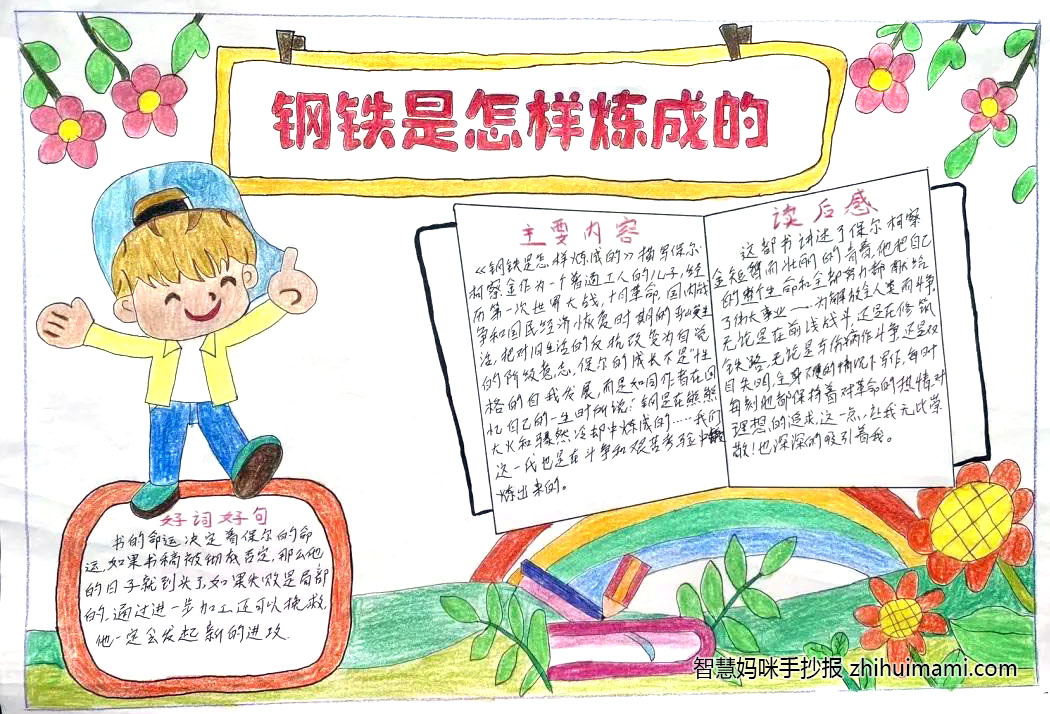 钢铁是怎样炼成的
主要内容
《钢铁是怎样炼成的》描写保尔·
柯察金作为一个普通工人的儿子,经
历第一次世界大战,十月革命,国内战
争和国民经济恢复时期的
活,把对旧生活的反抗改变为自觉
的阶级意志,保尔的成长不是“性
格的自我发展,而是如同作者在回
忆自己的一生时所说:“钢是在熊熊
大火和骤然冷却中炼成的……我们
这一代也是在斗争和艰苦考验中锻
炼出来的。
读后感
这部书讲述了保尔·柯察
金短暂而壮丽的青春,他把自己
的整个生命和全部努力都献给
了伟大事业——为解放全人类而斗争,
无论是在前线战斗,还是在修筑
铁路,无论是与伤病作斗争,还是双
目失明,全身不遂的情况下写作,每时
每刻他都保持着对革命的热情,对
理想的追求,这一点,让我无比崇
敬!也深深的吸引着我。
好词好句
书的命运决定着保尔的命
运,如果书稿被彻底否定,那么他
的日子就到头了,如果失败是局部
的,通过进一步加工还可以挽救,
他一定会发起新的进攻.
智慧妈咪手抄报 zhihuimami.com